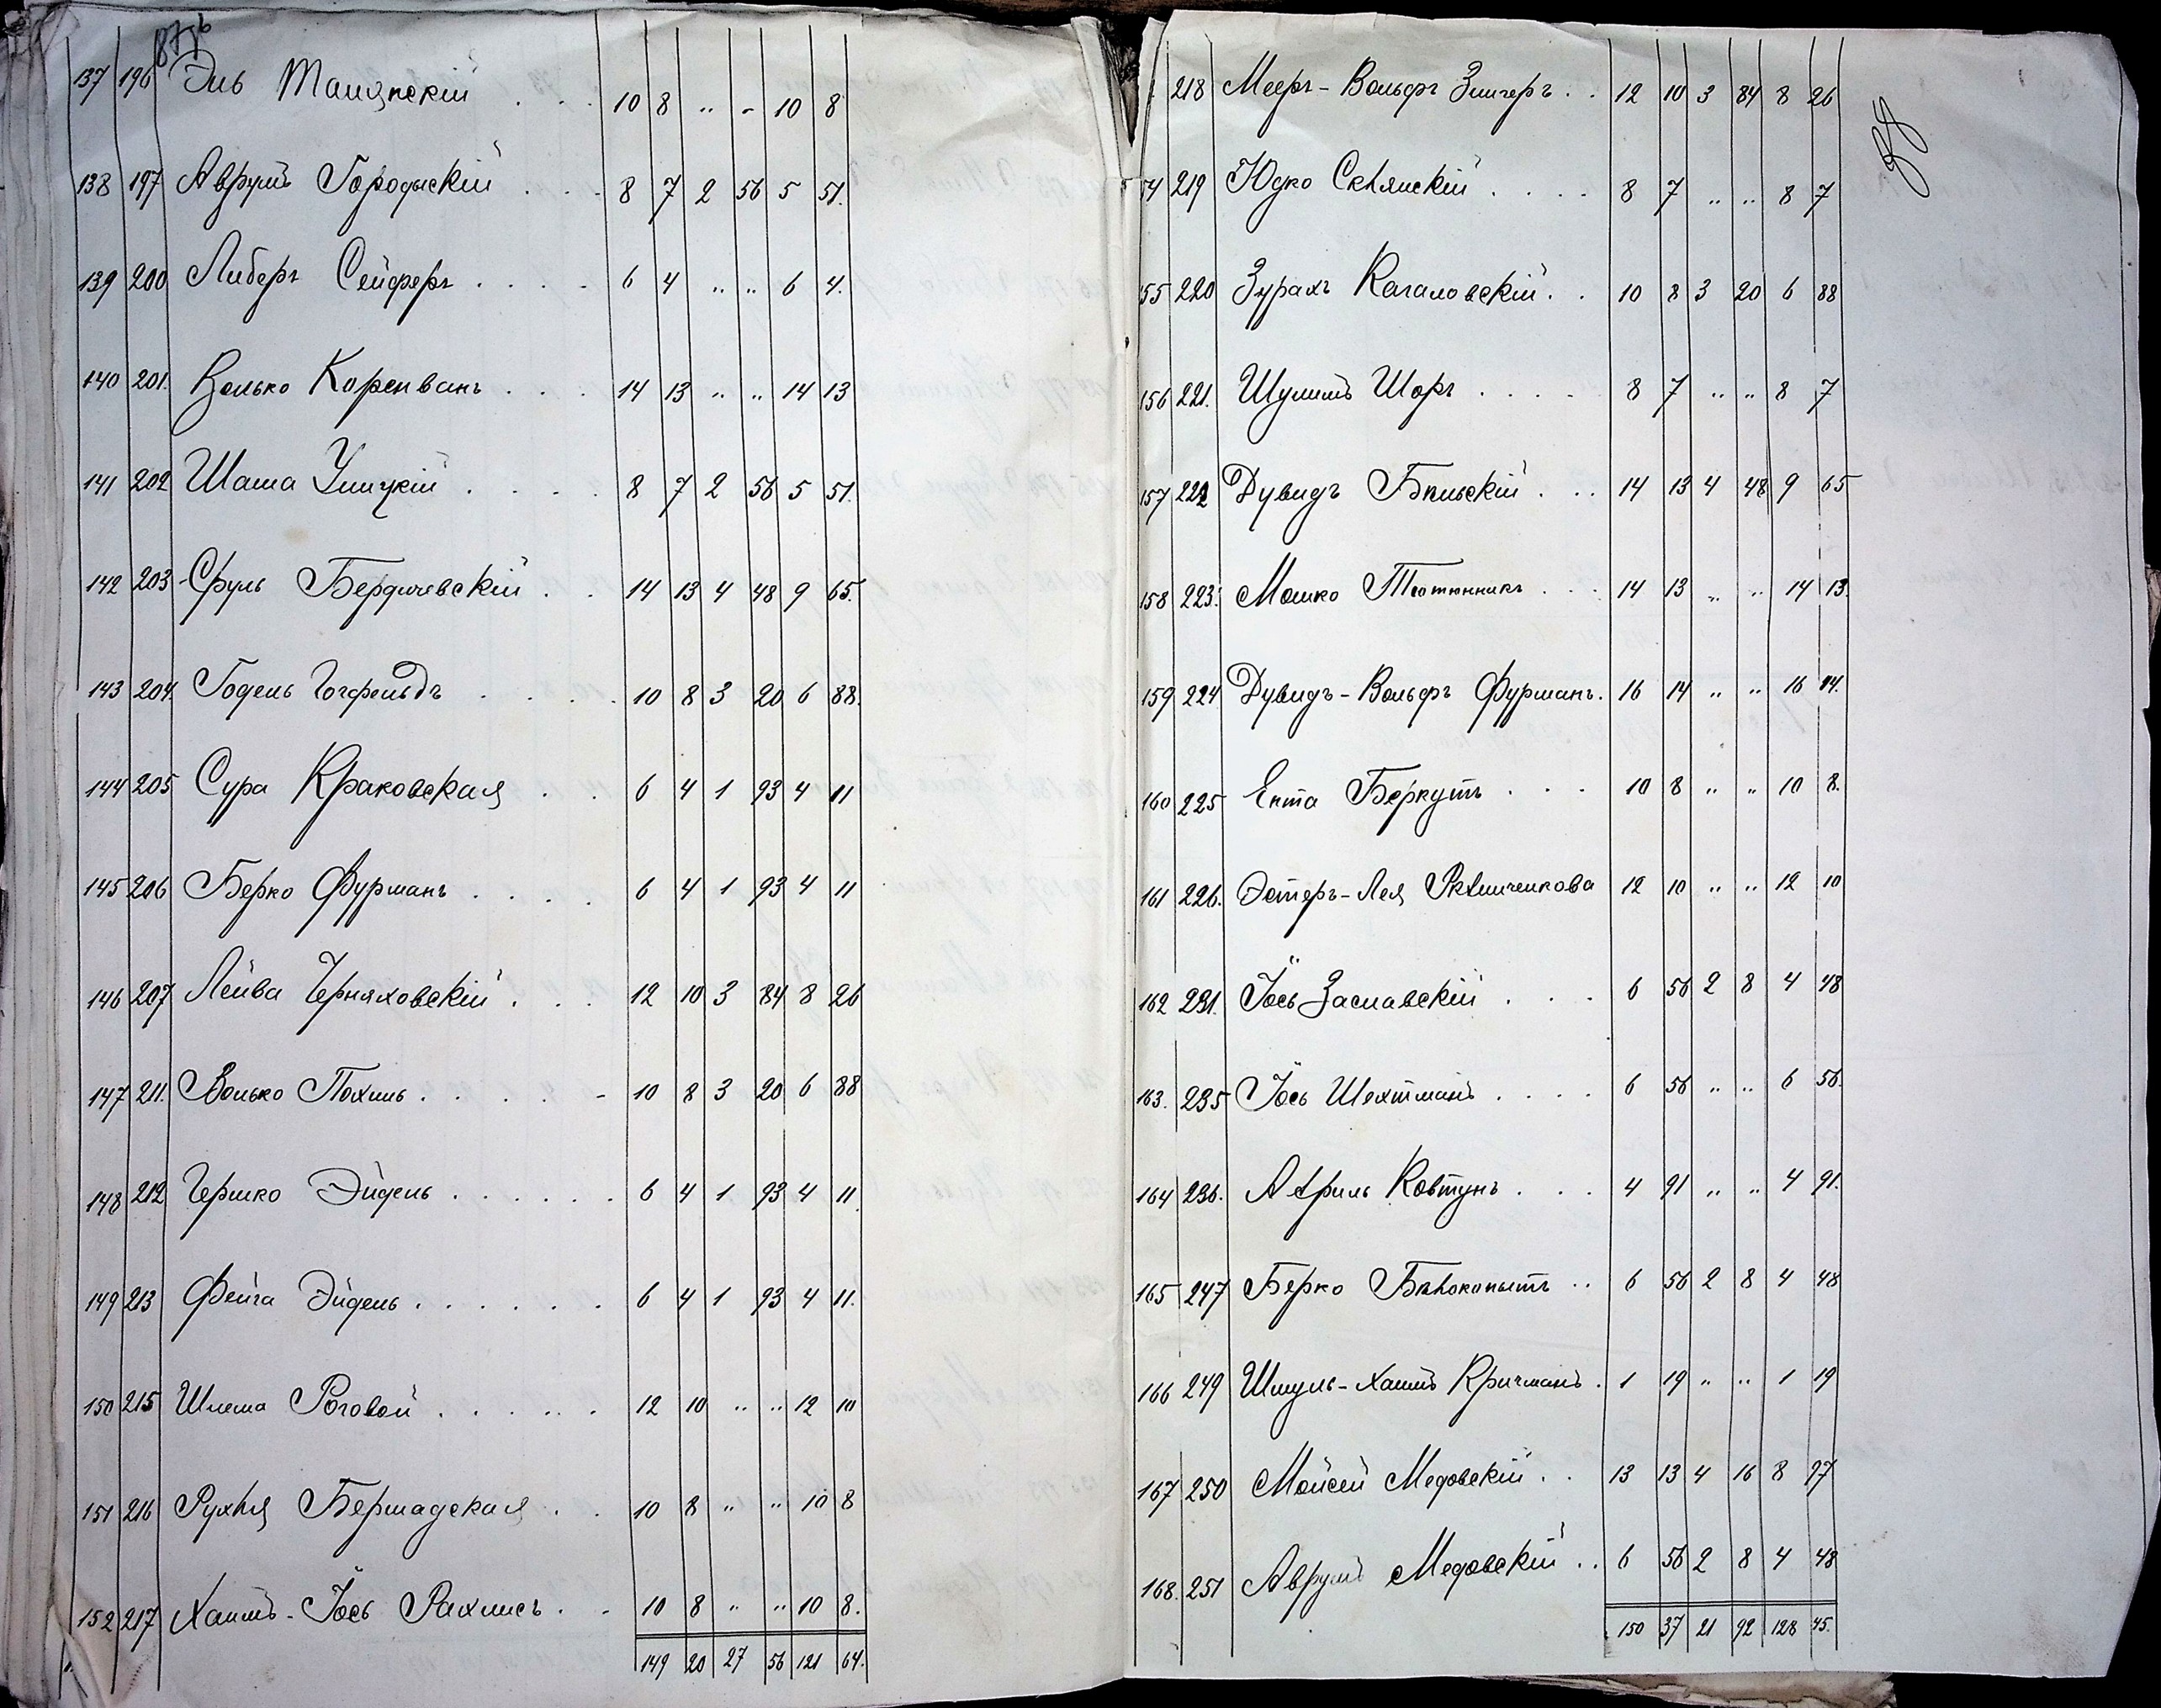 137 196 Эль 10 8 " - 10 8
138 197 Аврумъ Городискій 8 7 2 56 5 51.
139 200 Либеръ Сейферъ 6 4 " " 6 4.
140 201. Волько Коренванъ 14 13 " " 14 13
141 202 Шама Ушицкій 8 7 2 56 5 51.
142 203 Сруль Бердичевскій 14 13 4 48 9 65.
143 204. Годель Гохфельдъ 10 8 3 20 6 88.
144 205 Сура Краковская 6 4 1 93 4 11
145 206 Берко Фурманъ 6 4 1 93 4 11
146 207 Лейва Черняховскій 12 10 3 84 8 26
147 211. Волько Похиль 10 8 3 20 6 88
148 212 Гершко Эйдель 6 4 1 93 4 11
149 213 Фейга Эйдель 6 4 1 93 4 11.
150 215 Шлема Роговой 12 10 " " 12 10
151 216 Рухля Бершадская 10 8 " " 10 8
152 217 Хаимъ-Іось Рахлисъ 10 8 " " 10 8.
149 20 27 56 121 64.
218 Мееръ-Вольфъ Зингеръ 12 10 3 84 8 26
54 219 Юдко Склянскій 8 7 " " 8 7
55 220 Зурахъ Кагаловскій 10 8 3 20 6 88
156 221. Шулимъ Шоръ 8 7 " " 8 7
157 222 Дувидъ Бѣльскій 14 13 4 48 9 65
158 223. Мошко Тютюнникъ 14 13 " " 14 13.
159 224 Дувидъ-Вольфъ Фурманъ. 16 14 " " 16 14.
160 225 Ента Беркутъ 10 8 " " 10 8.
161 226. Эстеръ-Лея 12 10 " " 12 10
162 231. Іось Заславскій 6 56 2 8 4 48
163. 235 Іось Шехтманъ 6 56 " " 6 56.
164 236. Ковтунъ 4 91 " " 4 91.
165 247 Берко Бѣлокопытъ 6 56 2 8 4 48
166 249 Шмуль-Хаимъ Кричманъ. 1 19 " " 1 19
167 250 Мойсей Медовскій 13 13 4 16 8 97
168. 251 Аврумъ Медовскій 6 56 2 8 4 48
150 37 21 92 128 45.